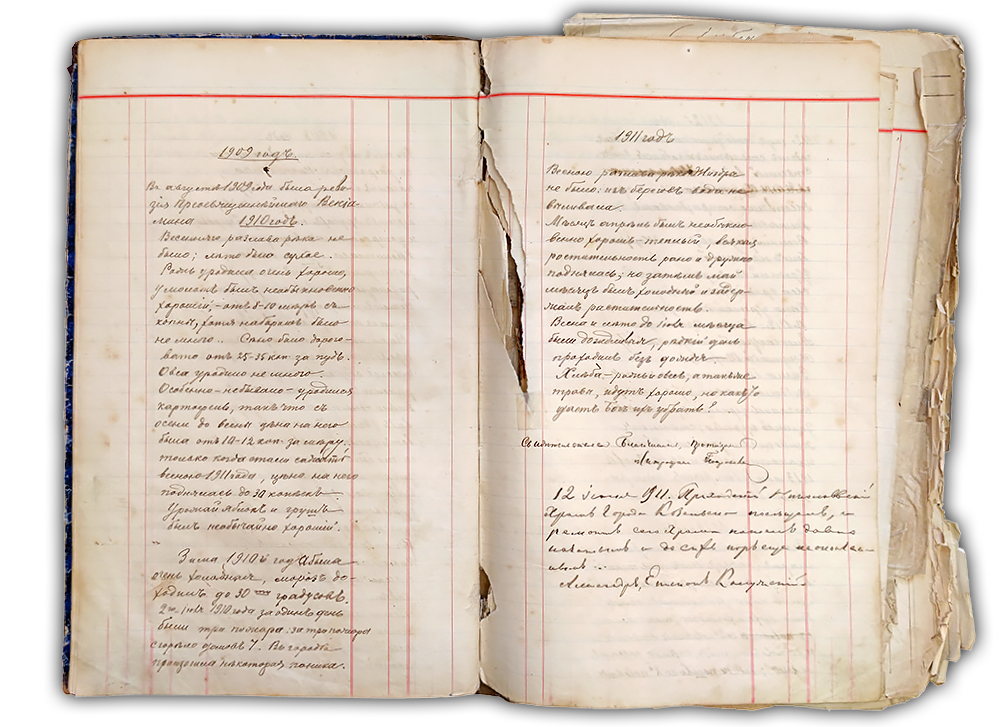 1909 годъ.
Въ августѣ 1909 года была реви-
зія Преосвященнѣйшаго
1910 годъ.
разлива рѣки не
было; лѣто было сухое.
Рожь уродила очень хорошо,
умолотъ былъ необыкновенно
хорошій, отъ 8-10 мѣръ съ
копны, хотя набралъ было
не много. Сѣно было дорого-
вато отъ 25-35 коп. за пудъ.
Овса уродило не много.
Особенно-небывало-уродился
картофель, такъ что съ
осени до весны цѣна на него
была отъ 10-12 коп. за мѣру
только когда стали сажать
весною 1911 года, цѣна на него
поднялась до 30 копѣекъ.
Урожай яблокъ и грушъ
былъ необычайно хорошій.
Зима 1910 й годъ была
очень холодная, морозъ до-
ходилъ до 30 градусовъ.
1910 года за одинъ день
были три пожара: за три пожара
сгорѣло домовъ 7. Въ городкѣ
произошла нѣкоторая паника.
1911 годъ
Весною разлива рѣки
не было: изъ береговъ вода не
выливала.
Мѣсяцъ апрѣль былъ необыкно-
венно хорошъ-теплый, всякая
растительность рано и дружно
поднялась; но затѣмъ май
мѣсяцъ былъ холодный и задер-
жалъ растительность.
Весна и лѣто до мѣсяца
были дождливыя, рѣдкій день
проходилъ безъ дождя.
Хлѣба-рожь и овесъ, а также
трава, идутъ хорошо, но какъ-то
дастъ Богъ ихъ убрать?
12 1911. Приходскій
Храмъ города
ремонтъ сего Храма давно
начатый и до сихъ поръ еще не окончен-
ный...
Александръ, Епископъ